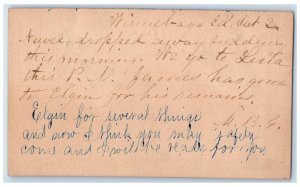 Winnebago Ill. Oct 2
dropped away suddenly
this morning. We go to
this P.M. James has gone
to Elgin for his remains.
Elgin for several things
and now I think you may safely
come and I will be ready for you